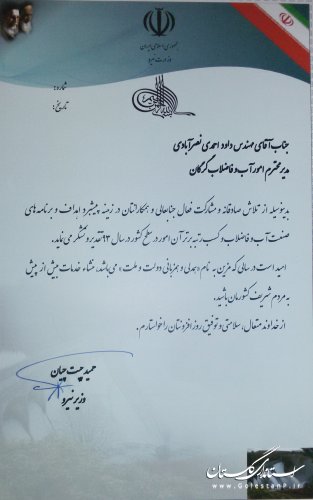 جمهوری اسلامی ایران
وزارت نیرو
شماره:
تاریخ:
جناب آقای مهندس داود احمدی نصرآبادی
مدیر محترم امور آب و فاضلاب گرگان
بدینوسیله از تلاش صادقانه و مشارکت فعال جنابعالی و همکارانتان در زمینه پیشبرد اهداف و برنامه های
صنعت آب و فاضلاب و کسب رتبه برتر آن امور در سطح کشور در سال ۹۳ تقدیر و تشکر می نماید.
امید است در سالی که مزین به نام «همدلی و همزبانی دولت و ملت» می باشد، منشاء خدمات بیش از پیش
به مردم شریف کشورمان باشید.
از خداوند متعال، سلامتی و توفیق روز افزونتان را خواستارم.
حمید چیت چیان
وزیر نیرو
استانداری گلستان
www.GolestanP.ir